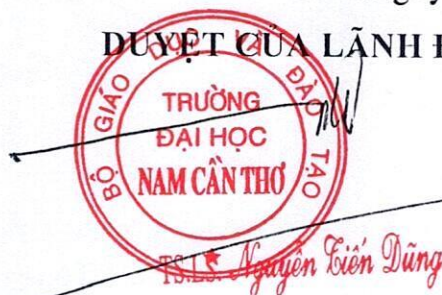 DUYỆT CỦA LÃNH Đ
BỘ GIÁO DỤC VÀ ĐÀO TẠO
TRƯỜNG
ĐẠI HỌC
NAM CẦN THƠ
TS.LS. Nguyễn Tiến Dũng